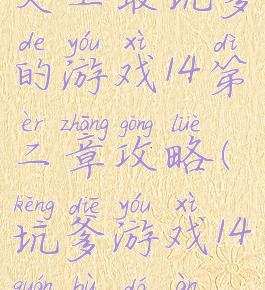 de yóu xì dì
的游戏14第
èr zhāng gōng lüè
二章攻略(
kēng diē yóu xì
坑爹游戏14